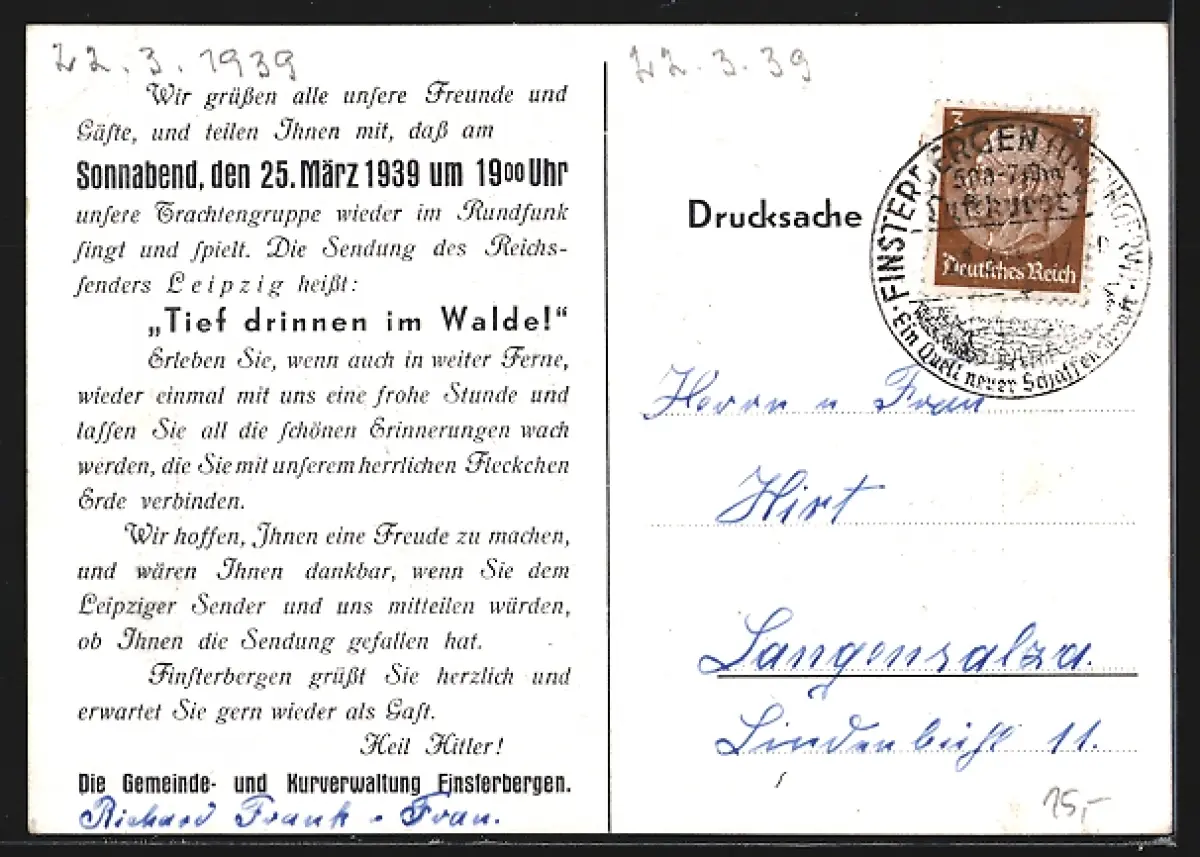 22.3.1939
Wir grüßen alle unſere Freunde und
Gäſte, und teilen Ihnen mit, daß am
Sonnabend, den 25. März 1939 um 19⁰⁰ Uhr
unſere Trachtengruppe wieder im Rundfunk
ſingt und ſpielt. Die Sendung des Reichs-
ſenders Leipzig heißt:
„Tief drinnen im Walde!“
Erleben Sie, wenn auch in weiter Ferne,
wieder einmal mit uns eine frohe Stunde und
laſſen Sie all die ſchönen Erinnerungen wach
werden, die Sie mit unſerem herrlichen Fleckchen
Erde verbinden.
Wir hoffen, Ihnen eine Freude zu machen,
und wären Ihnen dankbar, wenn Sie dem
Leipziger Sender und uns mitteilen würden,
ob Ihnen die Sendung gefallen hat.
Finſterbergen grüßt Sie herzlich und
erwartet Sie gern wieder als Gaſt.
Heil Hitler!
Die Gemeinde- und Kurverwaltung Finsterbergen.
Richard Frank - Frau.
22.3.39
Drucksache
3 3
Deutſches Reich
FINSTERBERGEN
500-710m
Luftkurort
Ein Quell neuer Schaffenskraft
Herrn u Frau
Hirt
Langensalza.
Lindenbühl 11.
15,-